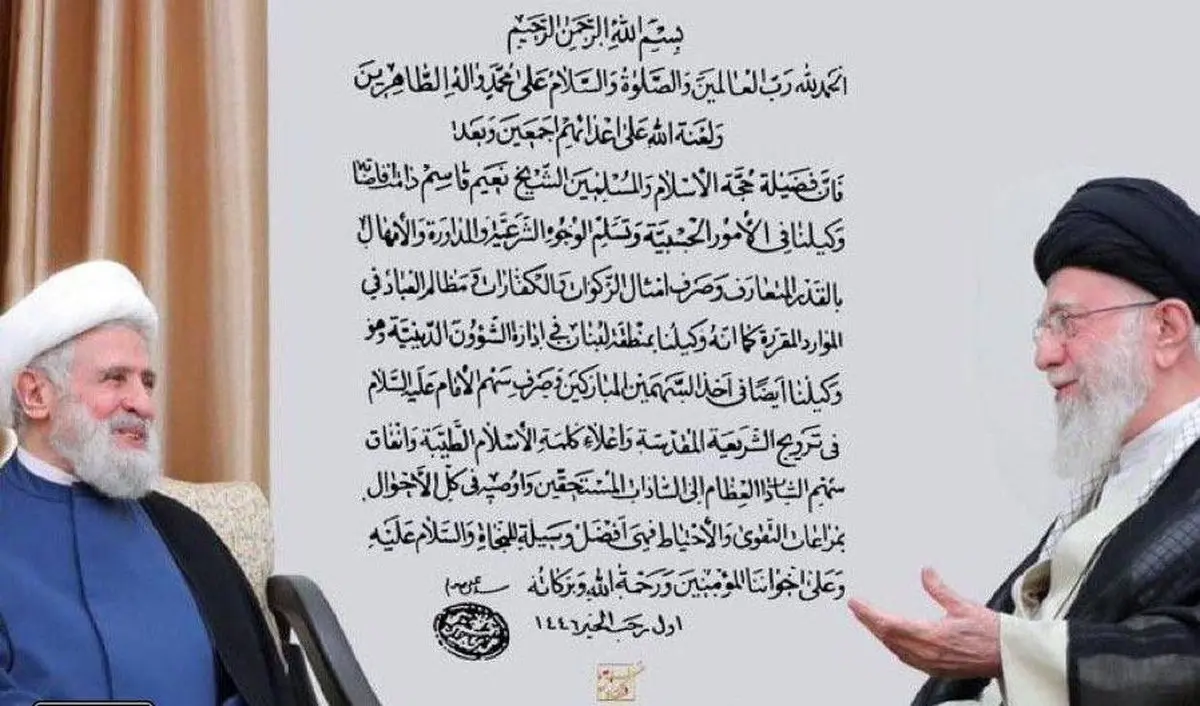 بسم الله الرحمن الرحيم
الحمد لله رب العالمين والصلوة والسلام على محمد واله الطاهرين
ولعنة الله على اعدائهم اجمعين وبعد
فان فضيلة حجة الاسلام والمسلمين الشيخ نعيم قاسم دامت افاضاته
وكيلنا في الأمور الحسبية وتسلم الوجوه الشرعية والمداورة والأمهال
بالقدر المتعارف وصرف امثال الزكوات والكفارات ومظالم العباد في
الموارد المقررة كما انه وكيلنا بمنطقة لبنان في ادارة الشؤون الدينية وهو
وكيلنا ايضًا في اخذ السهمين المباركين وصرف سهم الامام عليه السلام
في ترويج الشريعة المقدسة واعلاء كلمة الاسلام الطيبة وانفاق
سهم السادة العظام الى السادات المستحقين واوصيه في كل الأحوال
بمراعات التقوى والأحتياط فهي افضل وسيلة للنجاة والسلام عليه
وعلى اخواننا المؤمنين ورحمة الله وبركاته
اول رجب الخير ١٤٤٦